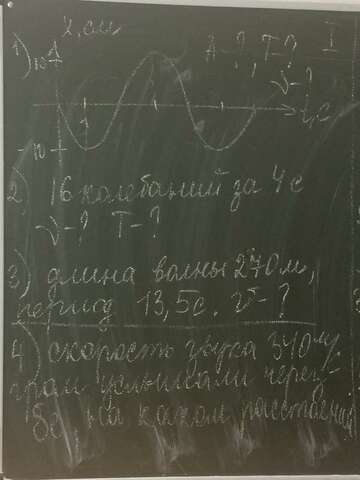 I
1) x, см
10
А-?, Т-?
ν-?
t, с
-10
2) 16 колебаний за 4 с
ν-? Т-?
3) длина волны 270 м,
период 13,5 с. υ-?
4) скорость звука 340 м/
гром услышали через
на каком расстоянии